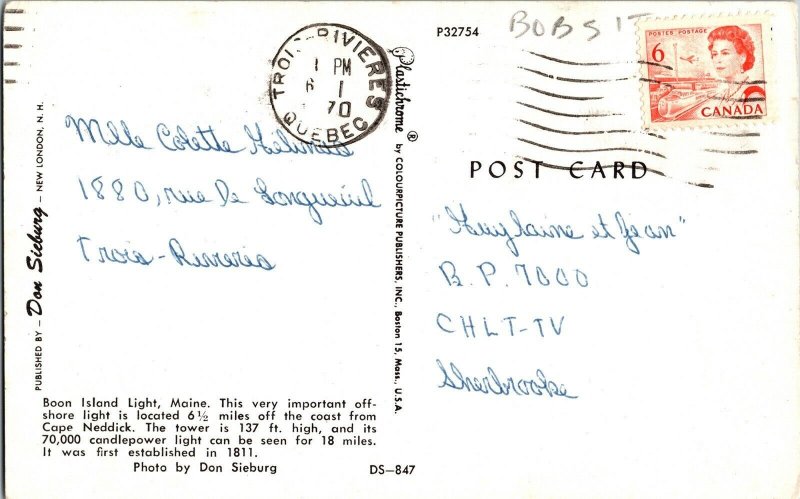 P32754
BOBSIT
TROIS-RIVIERES
1 PM
1
70
QUEBEC
POSTES POSTAGE
6
CANADA
Mlle Colette
1880, rue De Longueuil
Trois-Rivieres
PUBLISHED BY - Don Sieburg - NEW LONDON, N. H.
Plastichrome ® by COLOURPICTURE PUBLISHERS, INC., Boston 15, Mass., U.S.A.
POST CARD
"Guylaine et Jean"
B.P. 7000
CHLT-TV
Sherbrooke
Boon Island Light, Maine. This very important off-
shore light is located 6½ miles off the coast from
Cape Neddick. The tower is 137 ft. high, and its
70,000 candlepower light can be seen for 18 miles.
It was first established in 1811.
Photo by Don Sieburg
DS-847